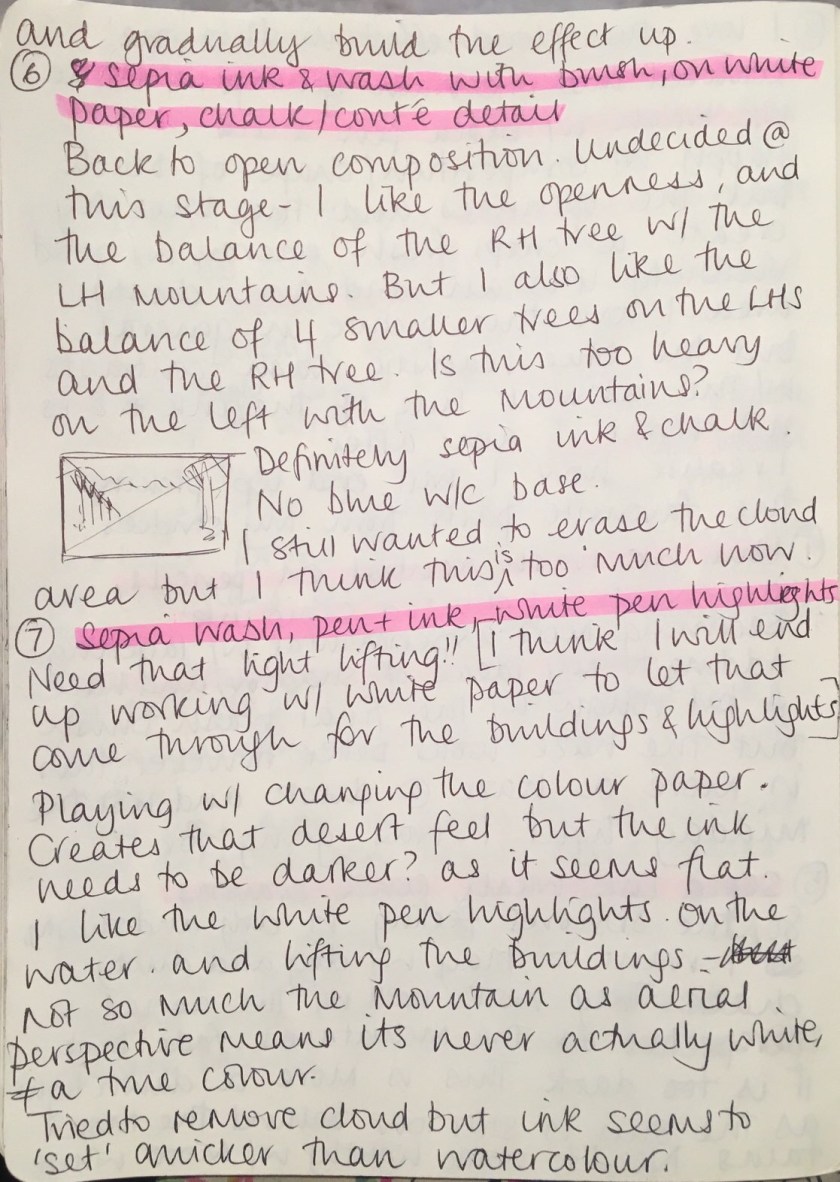 and gradually build the effect up.
⑥ sepia ink & wash with brush, on white
paper, chalk/conté detail
Back to open composition. Undecided @
this stage - I like the openness, and
the balance of the RH tree w/ the
LH Mountains. But I also like the
balance of 4 smaller trees on the LHS
and the RH tree. Is this too heavy
on the left with the Mountains?
Definitely sepia ink & chalk.
No blue w/c base.
I still wanted to erase the cloud
area but I think this is too much now.
⑦ Sepia wash, pen + ink, white pen highlights
Need that light lifting!! [I think I will end
up working w/ white paper to let that
come through for the buildings & highlights]
Playing w/ changing the colour paper.
Creates that desert feel but the ink
needs to be darker? as it seems flat.
I like the white pen highlights on the
water and lifting the buildings -
not so much the Mountain as aerial
perspective means its never actually white,
≠ a true colour.
Tried to remove cloud but ink seems to
'set' quicker than watercolour.